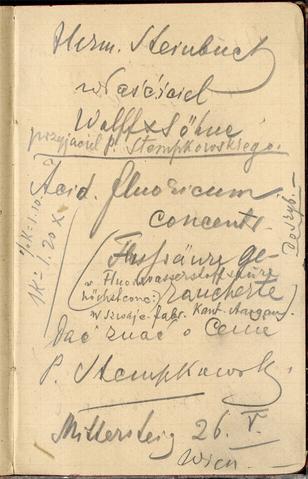 Herm. Steinbuch
właściciel
Wolff & Söhne
przyjaciel P. Stempkowskiego.
Acid. fluoricum
concentr.
(Flussäure ge-
w. Fluorwasserstoffsäure
höchstconc. rauchende)
w Szwajc. fabr. Kant. Aargau
Dać znać o cenie
P. Stempkowsk.
Mittersteig 26. V.
Wien.
1K = 1.20 x